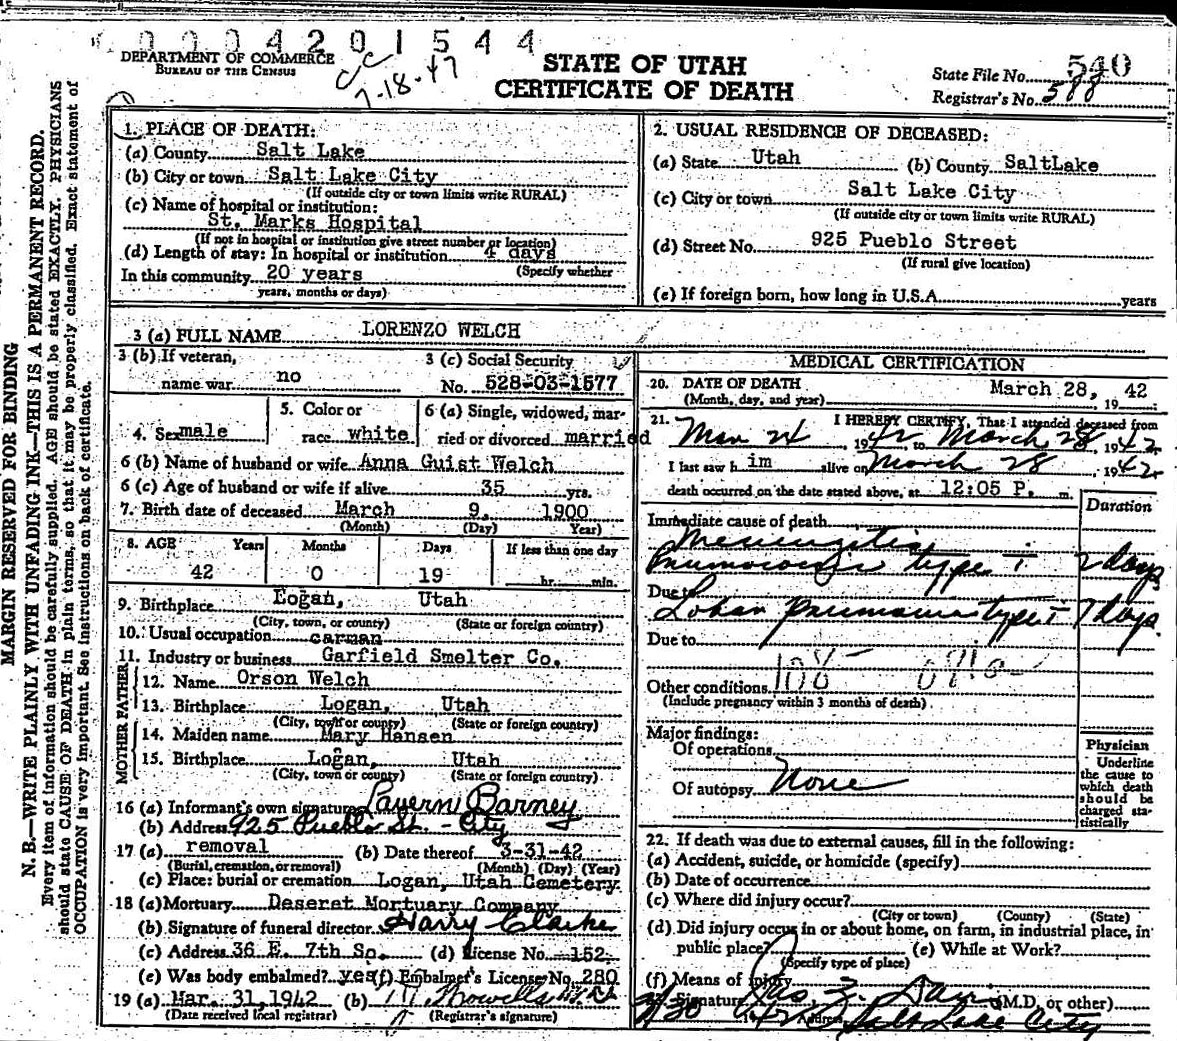 0004201544
DEPARTMENT OF COMMERCE
BUREAU OF THE CENSUS
7-18-47
STATE OF UTAH
CERTIFICATE OF DEATH
State File No. 540
Registrar's No. 588
MARGIN RESERVED FOR BINDING
N. B.—WRITE PLAINLY WITH UNFADING INK—THIS IS A PERMANENT RECORD.
Every item of information should be carefully supplied. AGE should be stated EXACTLY. PHYSICIANS
should state CAUSE OF DEATH in plain terms, so that it may be properly classified. Exact statement of
OCCUPATION is very important. See instructions on back of certificate.
1. PLACE OF DEATH:
(a) County Salt Lake
(b) City or town Salt Lake City
(If outside city or town limits write RURAL)
(c) Name of hospital or institution:
St. Marks Hospital
(If not in hospital or institution give street number or location)
(d) Length of stay: In hospital or institution 4 days
(Specify whether
In this community 20 years
years, months or days)
2. USUAL RESIDENCE OF DECEASED:
(a) State Utah (b) County SaltLake
(c) City or town Salt Lake City
(If outside city or town limits write RURAL)
(d) Street No. 925 Pueblo Street
(If rural give location)
(e) If foreign born, how long in U.S.A. years
3 (a) FULL NAME LORENZO WELCH
3 (b) If veteran,
name war no
3 (c) Social Security
No. 528-03-1577
4. Sex male
5. Color or
race white
6 (a) Single, widowed, mar-
ried or divorced married
6 (b) Name of husband or wife Anna Guist Welch
6 (c) Age of husband or wife if alive 35 yrs.
7. Birth date of deceased March 9, 1900
(Month) (Day) Year)
8. AGE Years Months Days If less than one day
42 0 19 hr. min.
9. Birthplace Logan, Utah
(City, town, or county) (State or foreign country)
10. Usual occupation carman
11. Industry or business Garfield Smelter Co.
FATHER
12. Name Orson Welch
13. Birthplace Logan, Utah
(City, town or county) (State or foreign country)
MOTHER
14. Maiden name Mary Hansen
15. Birthplace Logan, Utah
(City, town or county) (State or foreign country)
16 (a) Informant's own signature Lavern Barney
(b) Address 925 Pueblo St. - City
17 (a) removal (b) Date thereof 3-31-42
(Burial, cremation, or removal) (Month) (Day) (Year)
(c) Place: burial or cremation Logan, Utah Cemetery
18 (a) Mortuary Deseret Mortuary Company
(b) Signature of funeral director Harry Clarke
(c) Address 36 E. 7th So. (d) License No. 152
(e) Was body embalmed? yes (f) Embalmer's License No. 280
19 (a) Mar. 31, 1942 (b)
(Date received local registrar) (Registrar's signature)
MEDICAL CERTIFICATION
20. DATE OF DEATH March 28, 1942
(Month, day, and year)
21. I HEREBY CERTIFY, That I attended deceased from
Mar 24 1942 to March 28, 1942
I last saw him alive on March 28, 1942
death occurred on the date stated above, at 12:05 P. m.
Duration
Immediate cause of death
Meningitis
Pneumococcic type I 2 days
Due to
Lobar pneumonia type I 7 days
Due to
108
Other conditions
(Include pregnancy within 3 months of death)
Major findings:
Of operations
Of autopsy None
Physician
Underline
the cause to
which death
should be
charged sta-
tistically
22. If death was due to external causes, fill in the following:
(a) Accident, suicide, or homicide (specify)
(b) Date of occurrence
(c) Where did injury occur?
(City or town) (County) (State)
(d) Did injury occur in or about home, on farm, in industrial place, in
public place? (e) While at Work?
(Specify type of place)
(f) Means of injury
Signature (M.D. or other)
Address Salt Lake City